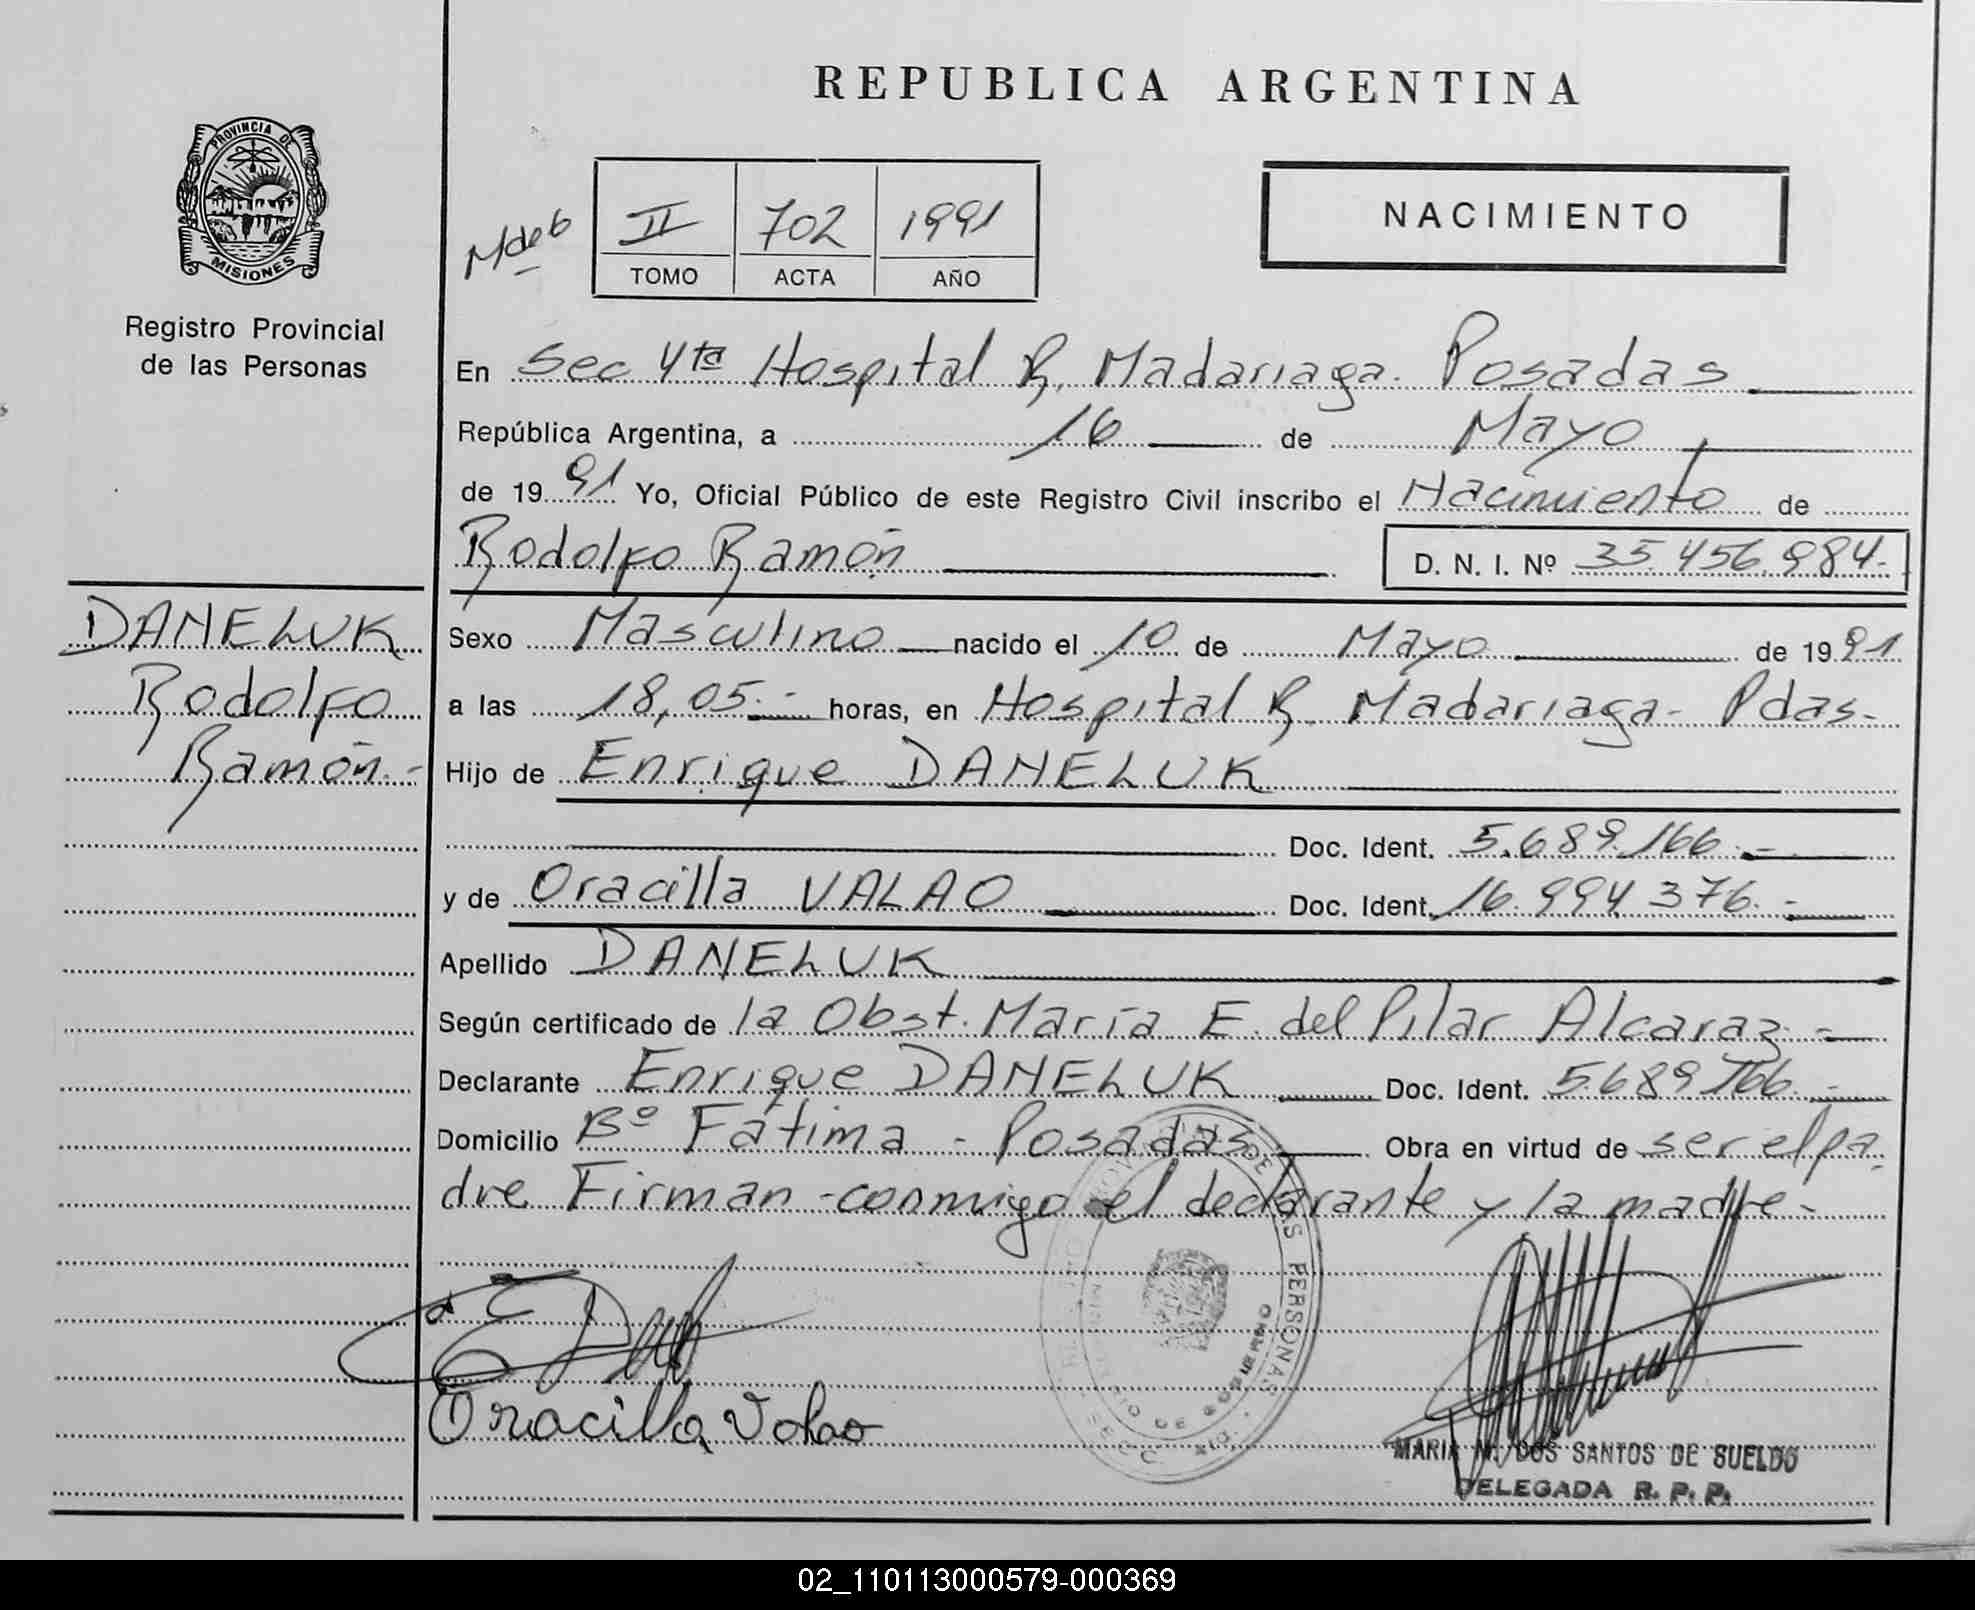 REPUBLICA ARGENTINA
PROVINCIA DE
MISIONES
Registro Provincial
de las Personas
II 702 1991
TOMO ACTA AÑO
NACIMIENTO
En Sec 4ta Hospital R. Madariaga. Posadas
República Argentina, a 16 de Mayo
de 1991 Yo, Oficial Público de este Registro Civil inscribo el Nacimiento de
Rodolfo Ramón D. N. I. Nº 35.456.984.-
DANELUK
Rodolfo
Ramón.-
Sexo Masculino nacido el 10 de Mayo de 1991
a las 18,05.- horas, en Hospital R. Madariaga- Pdas-
Hijo de Enrique DANELUK
Doc. Ident. 5.689.166.-
y de Oracilla VALAO Doc. Ident. 16.994.376.-
Apellido DANELUK
Según certificado de la Obst. María E. del Pilar Alcaraz.-
Declarante Enrique DANELUK Doc. Ident. 5.689.166.-
Domicilio Bº Fátima - Posadas Obra en virtud de ser el pa
dre Firman-conmigo el declarante y la madre-
Oracilla Valao
MARIA M. DOS SANTOS DE SUELDO
DELEGADA R. P. P.
02_110113000579-000369